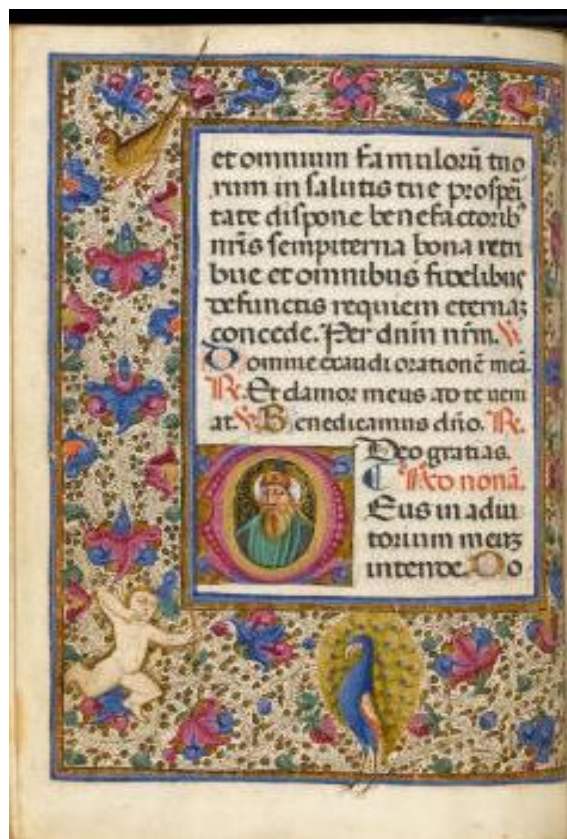 et omnium famulorũ tuo
rum in salutis tue prosperi
tate dispone benefactorib'
nr̃is sempiterna bona retri
bue et omnibus fidelibus
defunctis requiem eternaz
concede. Per dñm nr̃m. V
Domine exaudi orationẽ meã.
R. Et clamor meus ad te veni
at. V. Benedicamus dño. R.
Deo gratias.
Ad nonã.
Deus in adiu
torium meuz
intende. Do